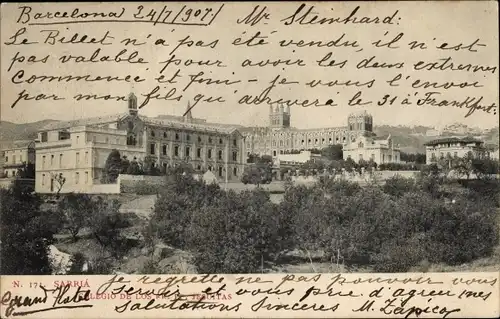 Barcelona 24/7/907/ Mr Steinhard:
Le Billet n'a pas été vendu, il n'est
pas valable pour avoir les deux extremes
commence et fini - je vous l'envoi
par mon fils qu'arrivera le 31 à Frankfort
N. 171 SARRIÁ
COLEGIO DE LOS PP. JESUITAS
Grand Hotel
Je regrette ne pas pouvoir vous
servir et vous prie d'agreer mes
salutations Sinceres M. Zapico